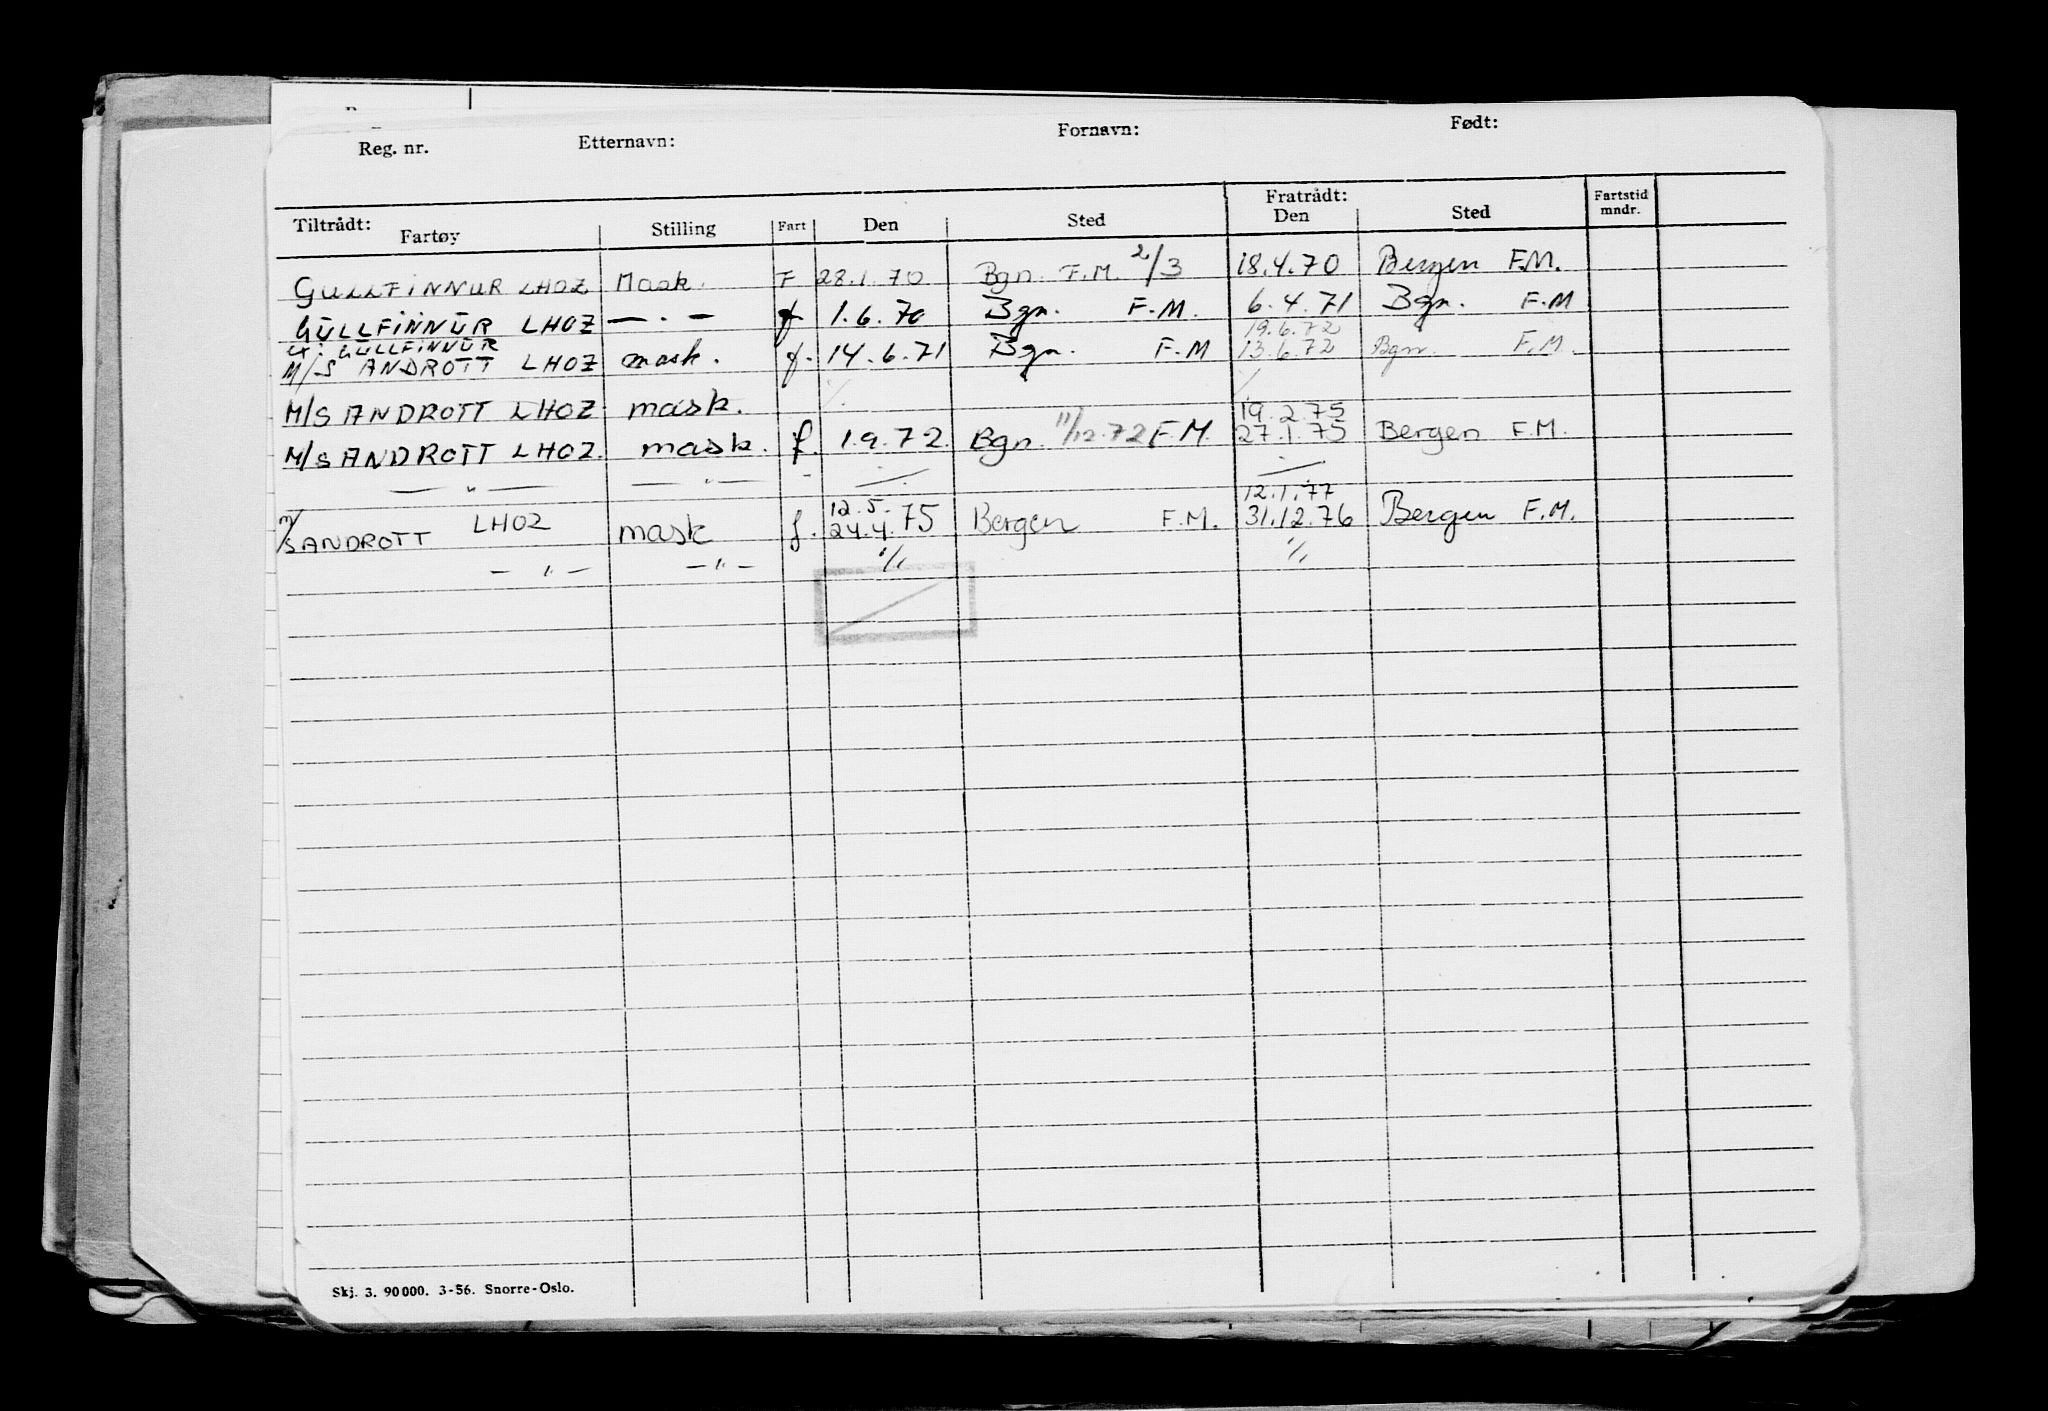 Reg. nr. Etternavn: Fornavn: Født:
Tiltrådt: Fratrådt: Fartstid
Fartøy Stilling Fart Den Sted Den Sted mndr.
GULLFINNUR LHOZ Mask. F 28.1.70 Bgn. F.M. 2/3 18.4.70 Bergen F.M.
GULLFINNUR LHOZ — . — f 1.6.70 Bgn. F.M. 6.4.71 Bgn. F.M
ex. GULLFINNUR 19.6.72
M/S ANDROTT LHOZ mask. f. 14.6.71 Bgn. F.M 13.6.72 Bgn. F.M.
M/S ANDROTT LHOZ mask. ./. ./.
19.2.75
M/S ANDROTT LHOZ. mask. f. 1.9.72. Bgn. 11/12.72 F.M. 27.1.75 Bergen F.M.
— " — — " — - ./. ./.
12.5. 12.1.77
M/S ANDROTT LHOZ mask f. 24.4.75 Bergen F.M. 31.12.76 Bergen F.M.
— " — — " — ./. ./.
Skj. 3. 90 000. 3-56. Snorre-Oslo.